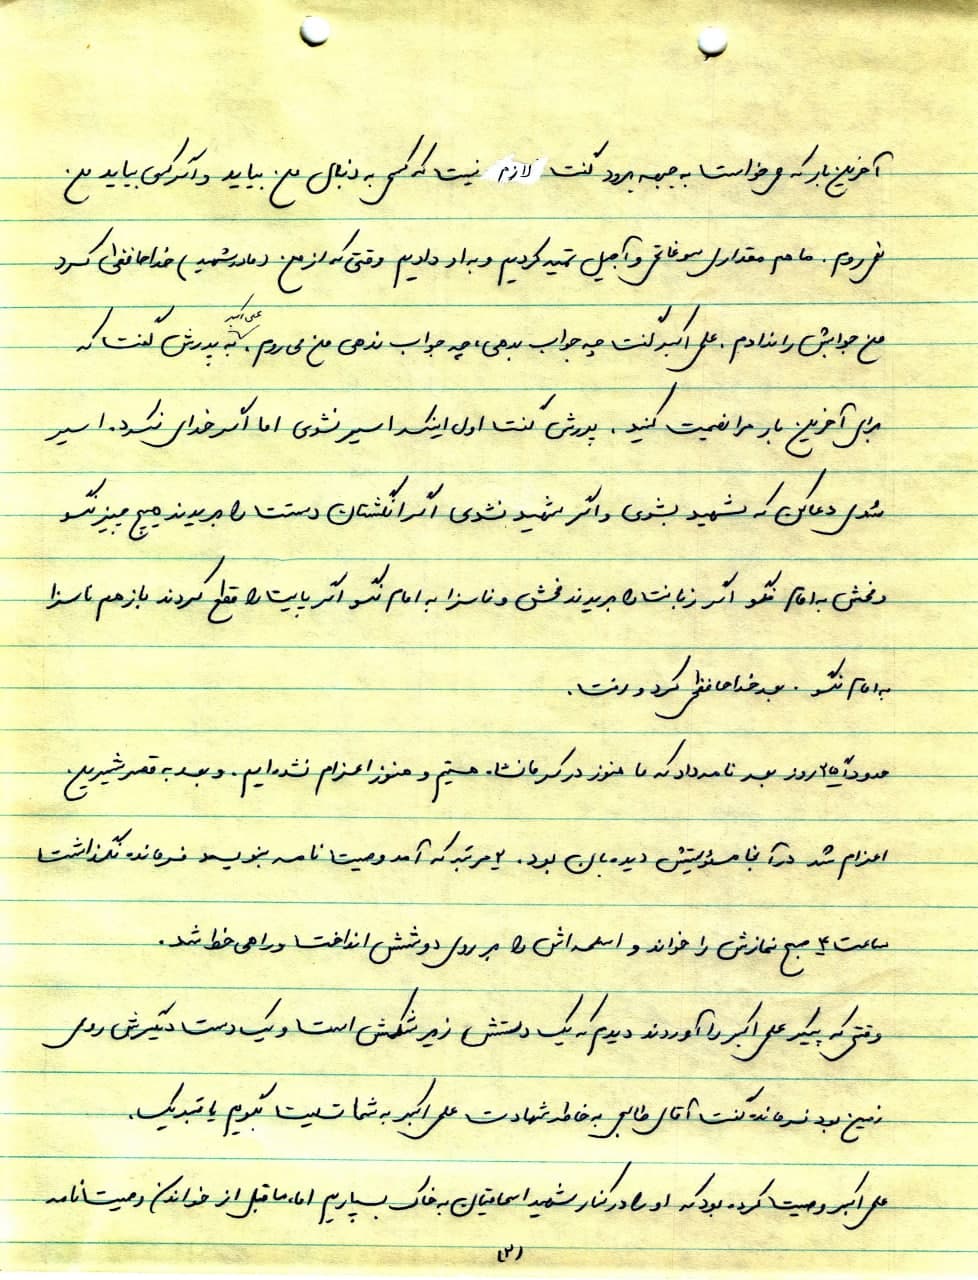 آخرین بار که می خواست به جبهه برود گفت لازم نیست که کسی به دنبال من بیاید و اگر کسی بیاید من
نمی روم. ما هم مقداری سوغاتی و آجیل تهیه کردیم و به او دادیم وقتی که از من (مادر شهید) خداحافظی کرد
من جوابش را ندادم. علی اکبر گفت چه جواب بدهی، چه جواب ندهی من می روم. علی اکبر به پدرش گفت که
برای آخرین بار مرا نصیحت کنید. پدرش گفت اول اینکه اسیر نشوی اما اگر خدای نکرده اسیر
شدی دعا کن که شهید بشوی و اگر شهید نشدی اگر انگشتان دستت را بریدند هیچ چیز نگو
و فحش به امام نگو اگر زبانت را بریدند فحش و ناسزا به امام نگو اگر پاییت را قطع کردند باز هم ناسزا
به امام نگو. بعد خداحافظی کرد و رفت.
حدوداً ۲۵ روز بعد نامه داد که ما هنوز در کرمانشاه هستیم و هنوز اعزام نشده ایم. و بعد به قصر شیرین
اعزام شد در آنجا مسؤلیتش دیده بان بود. ۲ مرتبه که آمد وصیت نامه بنویسد فرمانده نگذاشت
ساعت ۴ صبح نمازش را خواند و اسلحه اش را بر روی دوشش انداخت و راهی خط شد.
وقتی که پیکر علی اکبر را آوردند دیدم که یک دستش زیر شکمش است و یک دست دیگرش روی
زمین بود فرمانده گفت آقای طالبی به خاطر شهادت علی اکبر به شما تسلیت بگویم یا تبریک.
علی اکبر وصیت کرده بود که او را در کنار شهید اسحاقیان به خاک بسپاریم اما، ما قبل از خواندن وصیت نامه
(۲)